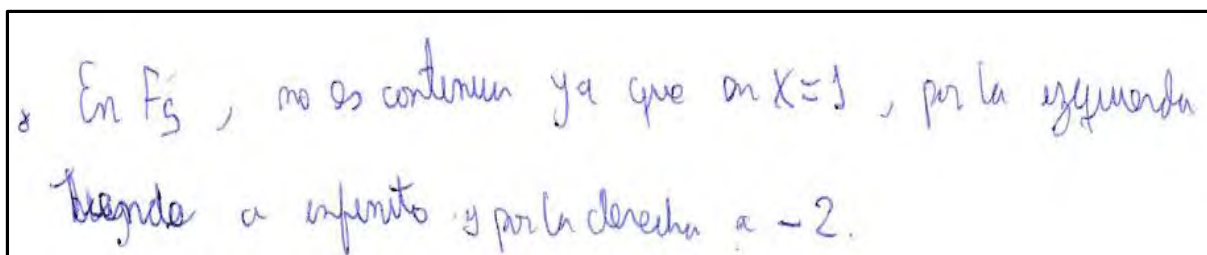 * En F5, no es continua ya que en X=1, por la izquierda
tiende a infinito y por la derecha a -2.